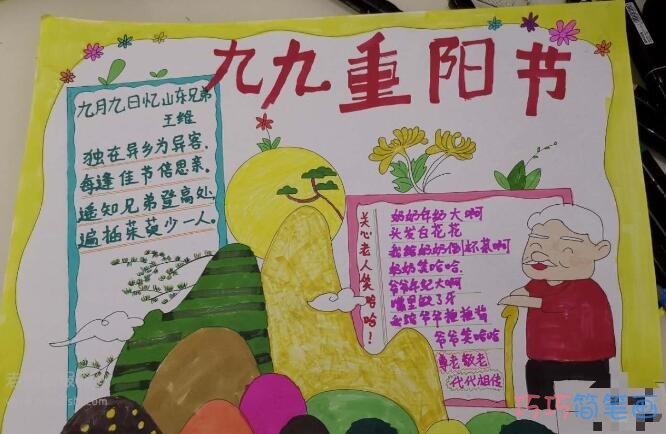 九九重阳节
九月九日忆山东兄弟
王维
独在异乡为异客,
每逢佳节倍思亲。
遥知兄弟登高处
遍插茱萸少一人。
关心老人笑哈哈!
奶奶年纪大啊
头发白花花
我给奶奶倒杯茶啊
奶奶笑哈哈.
爷爷年纪大啊
嘴里缺了牙
我给爷爷捶捶背
爷爷笑哈哈
尊老敬老
代代相传
巧巧简笔画